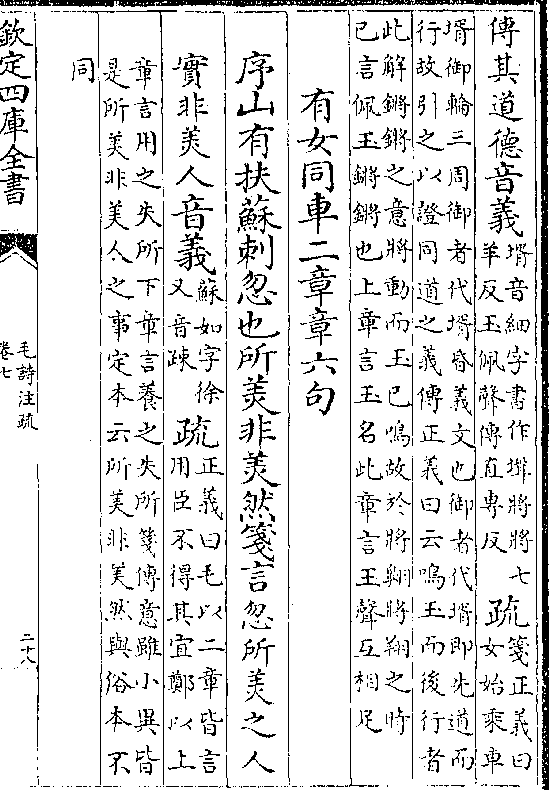 傳其道德音義壻音細字書作壻將將七
羊反玉佩聲傳直專反疏箋正義曰
女始乘車
壻御輪三周御者代壻昏義文也御者代壻即先道而
行故引之以證同道之義傳正義曰云鳴玉而後行者
此解鏘鏘之意將動而玉已鳴故於將翱將翔之時
已言佩玉鏘鏘也上章言玉名此章言玉聲互相足
有女同車二章章六句
序山有扶蘇刺忽也所美非美然箋言忽所美之人
實非美人音義蘇如字徐
又音疎疏正義曰毛以二章皆言
用臣不得其宜鄭以上
章言用之失所下章言養之失所箋傳意雖小異皆
是所美非美人之事定本云所美非美然與俗本不
同
欽定四庫全書
毛詩注疏
卷七
二十八